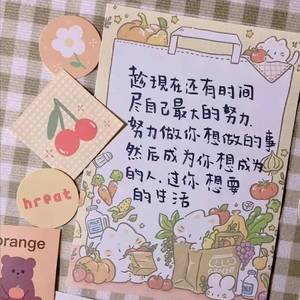 趁現在还有时间
尽自己最大的努力.
努力做你想做的事
然后成为你想成为
的人.过你想要
的生活
hreat
orange